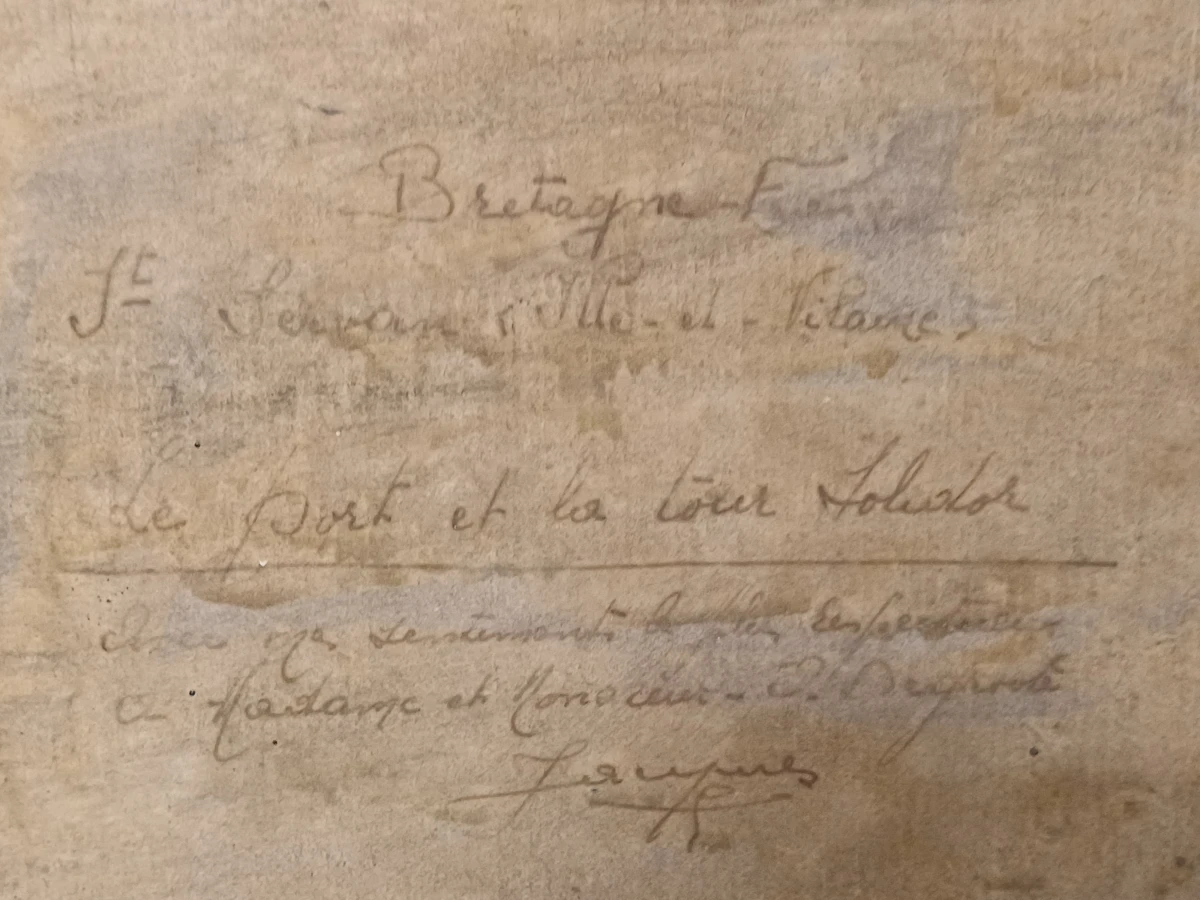 Bretagne - France
St Servan (Ille-et-Vilaine)
Le port et la tour Solidor
Avec mes sentiments les plus respectueux
a Madame et Monsieur
Jacques